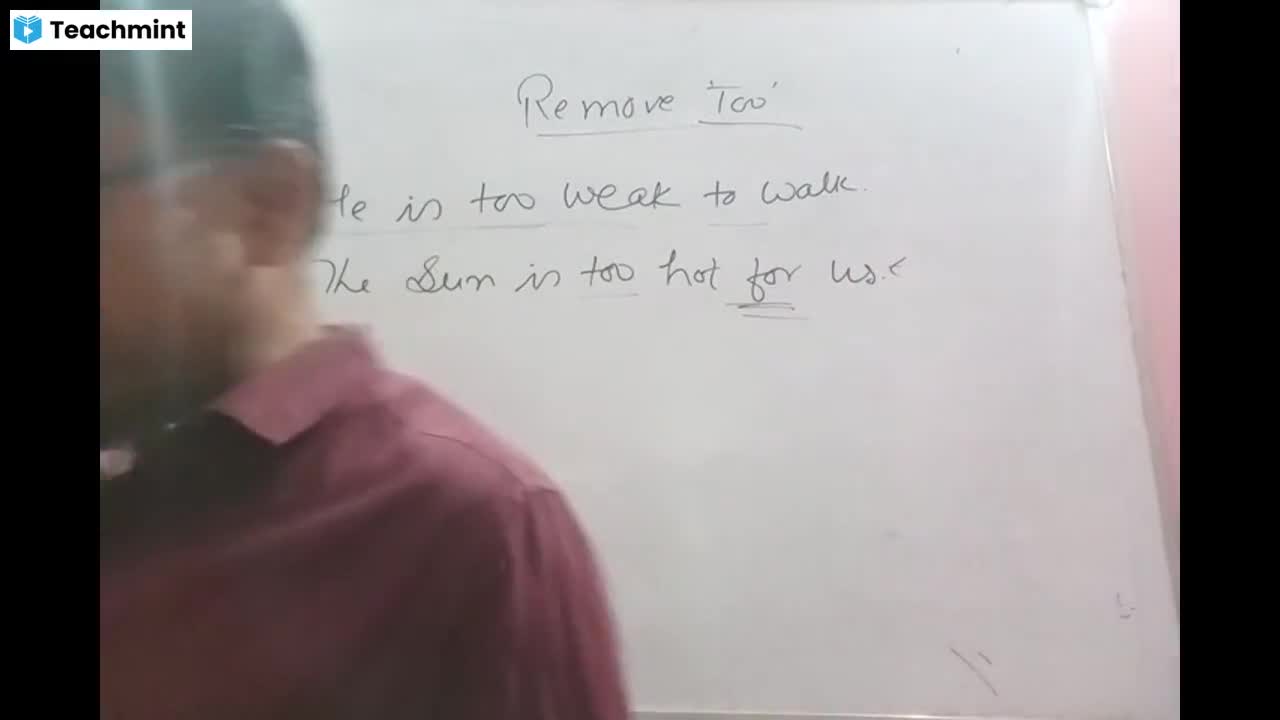 Teachmint
Remove 'Too'
He is too weak to walk.
The Sun is too hot for us.